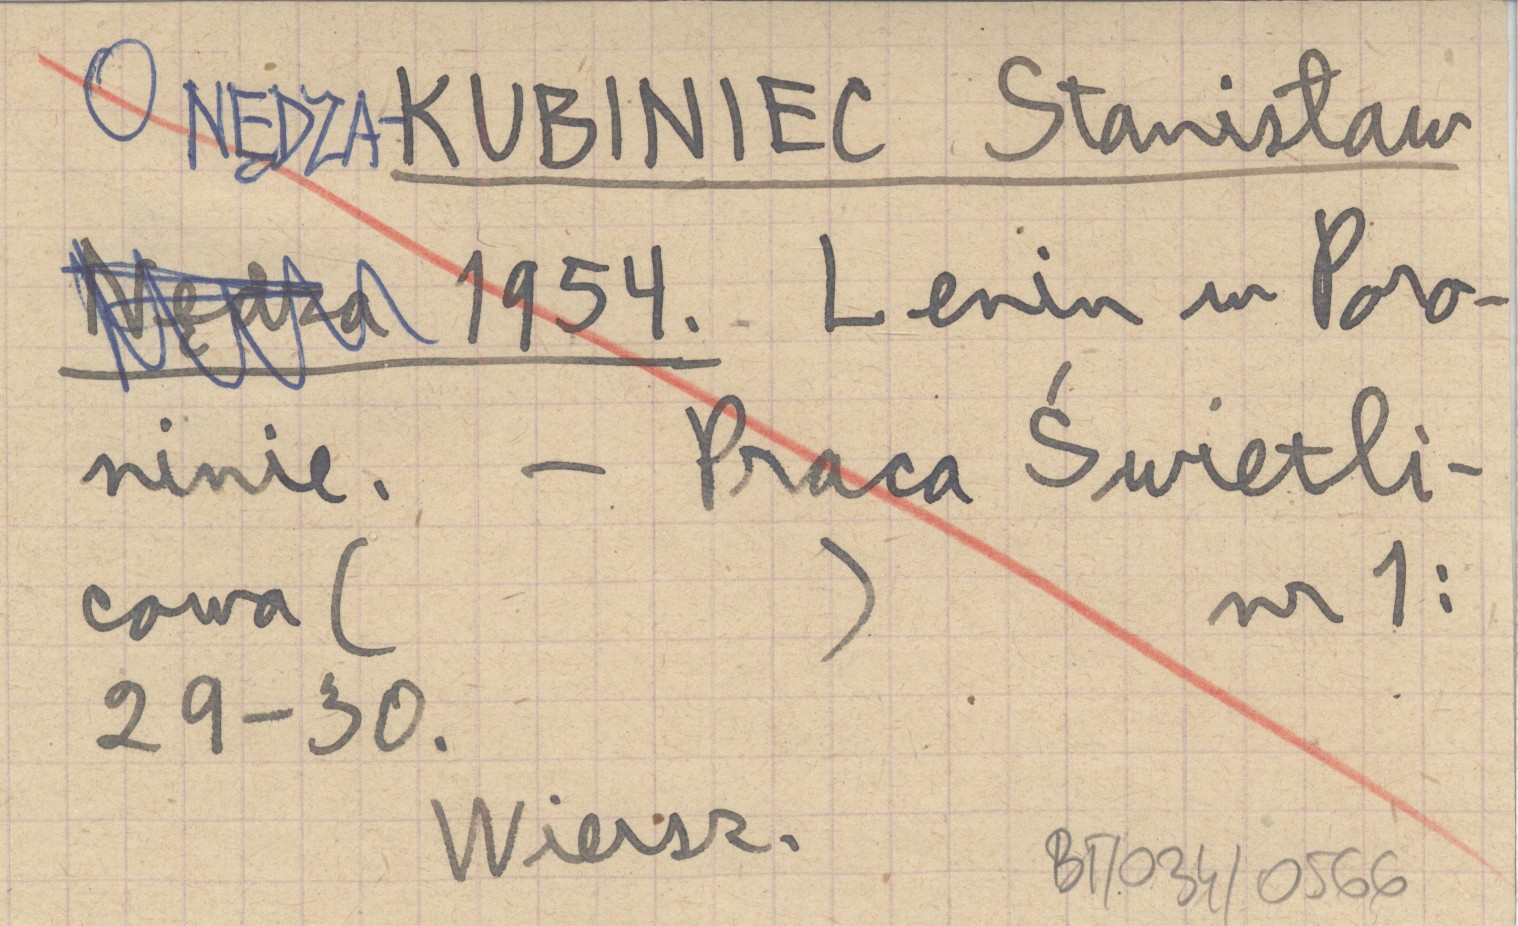 O NĘDZA-KUBINIEC Stanisław
Nędza 1954. Lenin w Poro-
ninie. – Praca Świetli-
cowa ( ) nr 1:
29–30.
Wiersz.
BT/034/0566